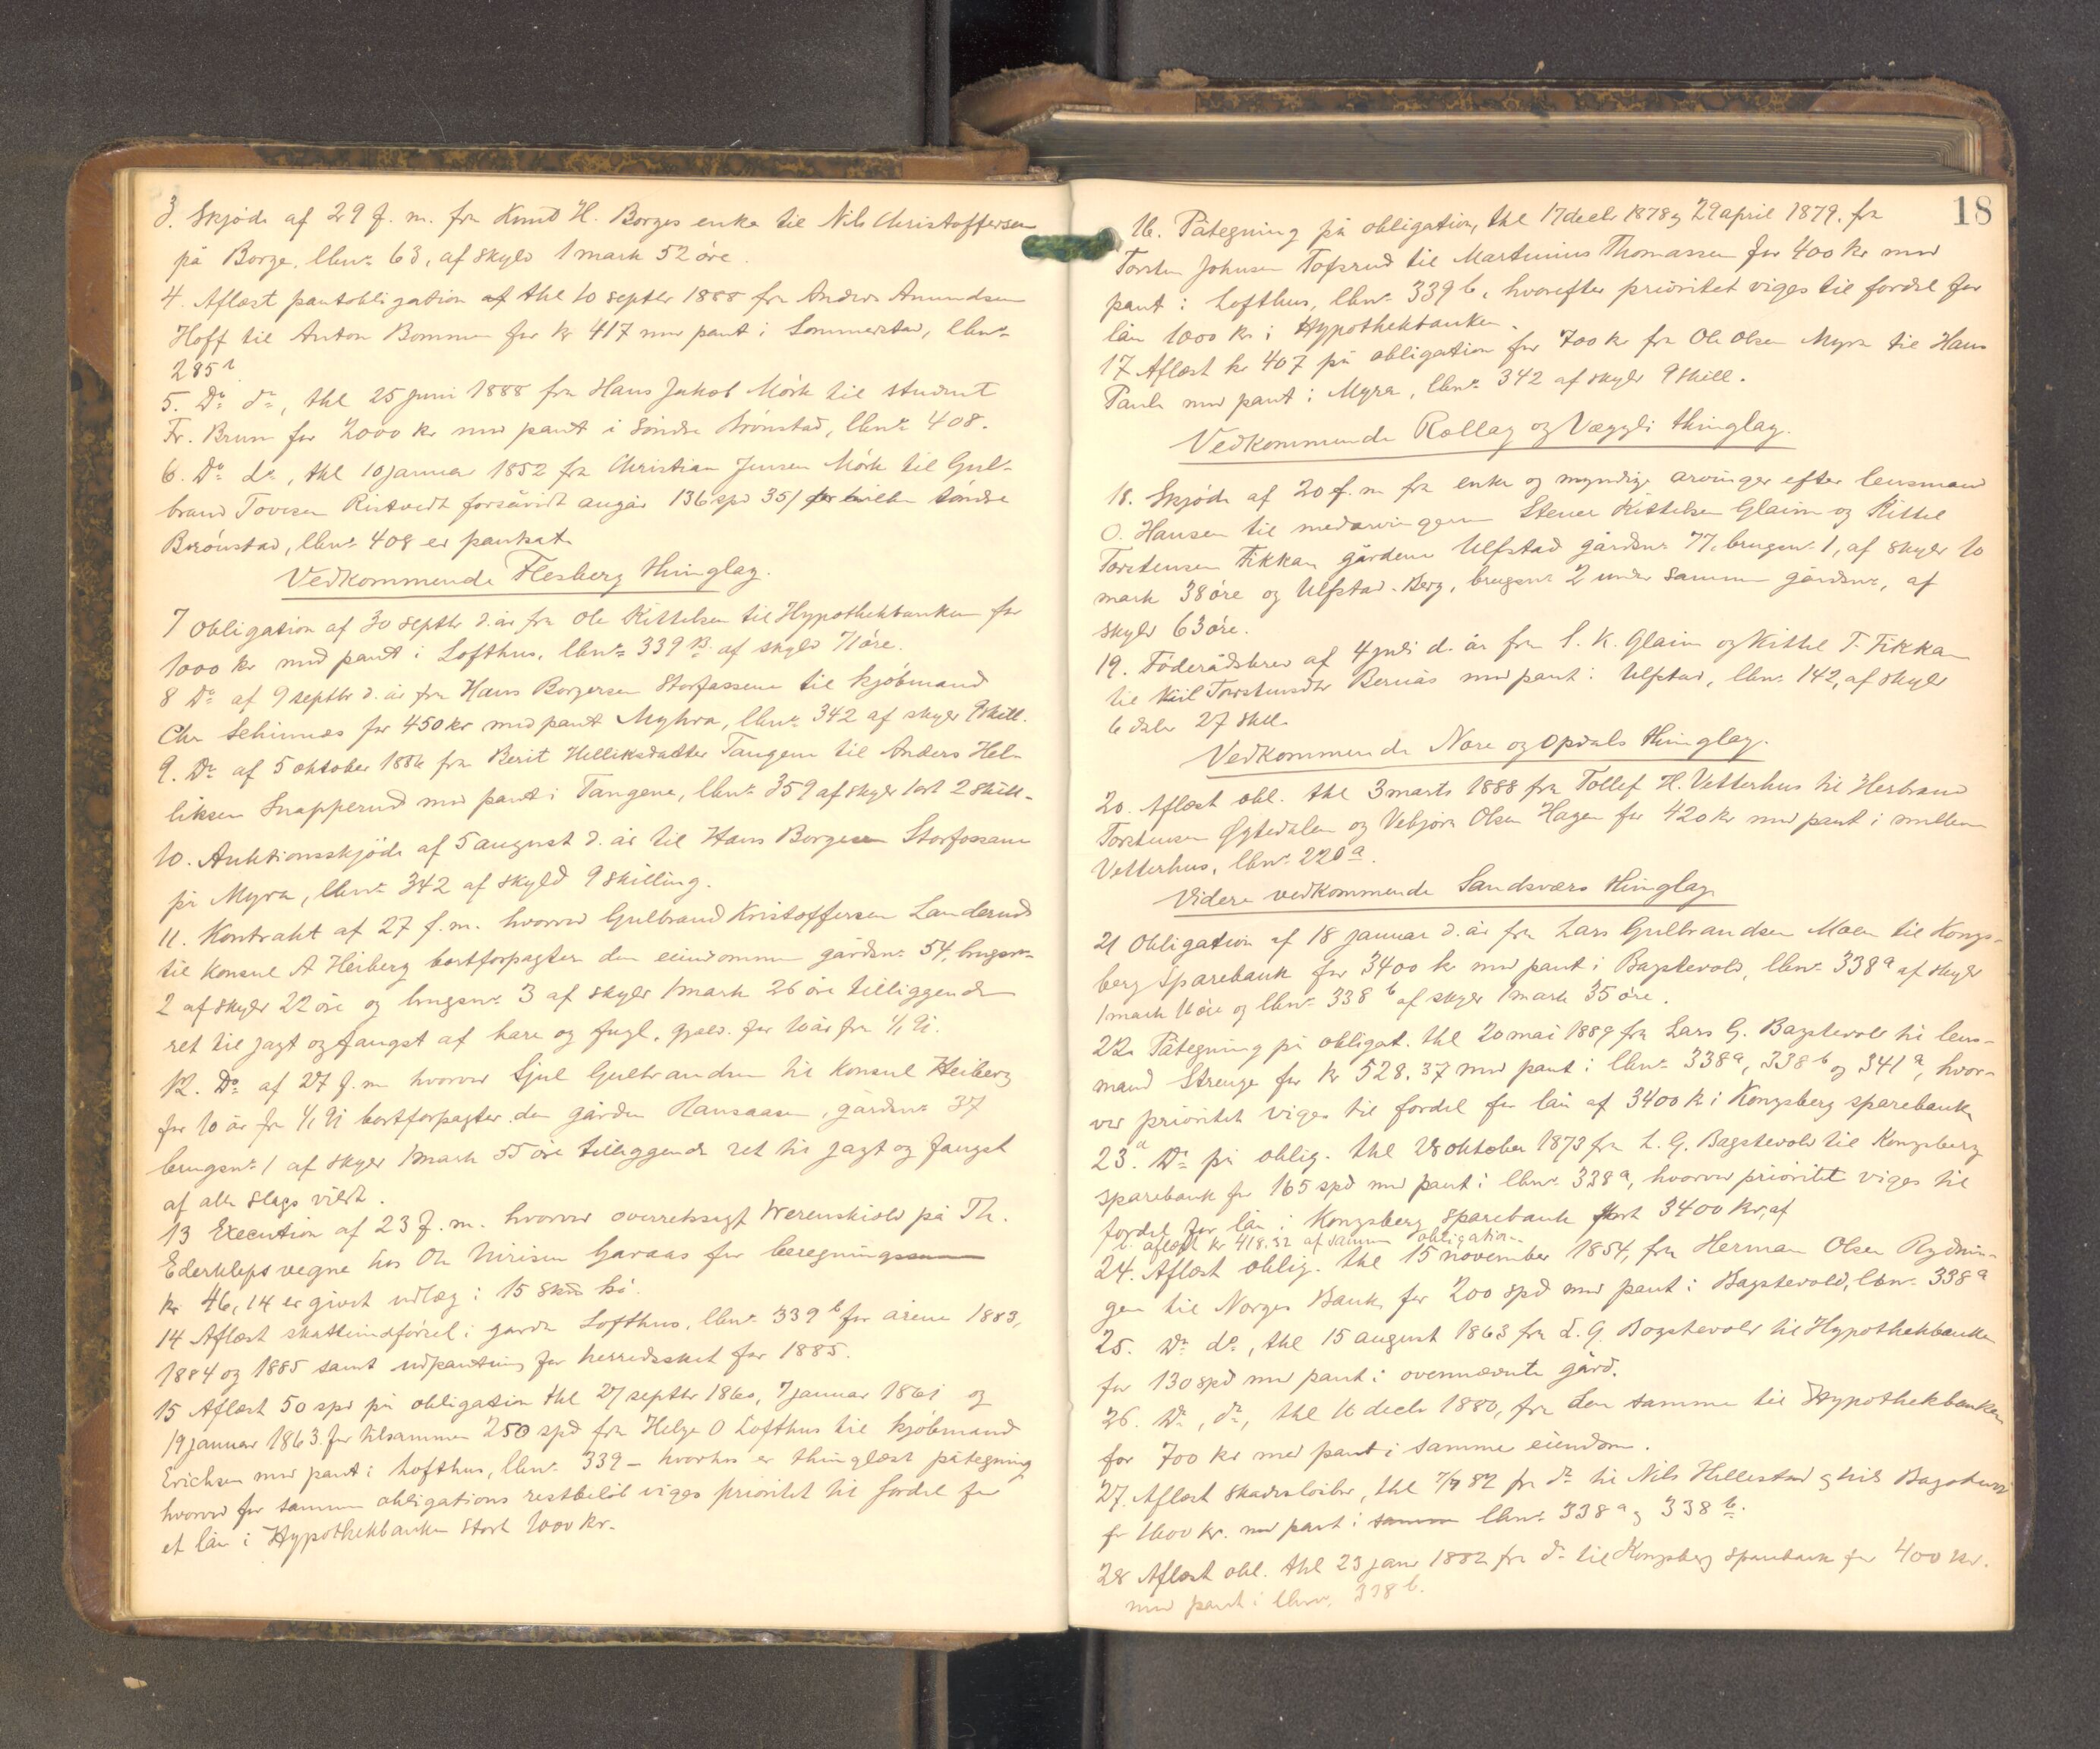 3. Skjöde af 29 f. m. fra Knud H. Borges enke til Nils Christoffersen
på Borge, lbnr 63, af skyld 1 mark 52 öre.
4. Aflæst pantobligation af thl 10 septbr 1888 fra Anders Amundsen
Hoff til Anton Bommen for kr 417 med pant i Sommerstad, lbnr
285
5. Do do, thl 25 juni 1888 fra Hans Jakob Mörk til student
Fr. Bruun for 2000 kr med pant i Söndre Brönstad, lbnr 408.
6. Do do, thl 10 januar 1852 fra Christian Jensen Mörk til Gul-
brand Tovesen Ristvedt forsåvidt angår 136 spd 351 söndre
Brönstad, lbnr 408 er pantsat.
Vedkommende Flesberg thinglag.
7 Obligation af 30 septbr d. år fra Ole Kittelsen til Hypothekbanken for
1000 kr med pant i Lofthus, lbnr 339 B. af skyld 71 öre.
8 Do af 9 septbr d. år fra Hans Borgersen Storfossene til kjöbmand
Chr Schinnæs for 450 kr med pant Myhra, lbnr 342 af skyld 9 skill.
9. Do af 5 oktober 1886 fra Berit Helliksdatter Tangen til Anders Hel-
liksen Snapperud med pant i Tangene, lbnr 359 af skyld 1 ort 2 skill-
10. Auktionsskjöde af 5 august d. år til Hans Borgesen Storfossene
på Myra, lbnr 342 af skyld 9 skilling.
11. Kontrakt af 27 f. m. hvorved Gulbrand Kristoffersen Landerud
til Konsul A Heiberg bortforpagter den eiendommen gårdsnr 54, brugsnr
2 af skyld 22 öre og brugsnr 3 af skyld 1 mark 26 öre tilliggende
ret til jagt og fangst af hare og fugl, gjæld. for 10 år fra 1/1 91.
12. Do af 27 f. m. hvorved Gjul Gulbrandsen til Konsul Heiberg
for 10 år fra 1/1 91 bortforpagter den gården Ransaasen, gårdsnr 37
brugsnr 1 af skyld 1 mark 55 öre tilliggende ret til jagt og fangst
af alle slags vildt.
13 Execution af 23 f. m. hvorved overretssagf Werenskiold på Th.
Ederkleps vegne hos Ole Nirisen Garaas for beregning
kr 46,14 er givet udlæg i 15 hö.
14 Aflæst skatteindförsel i gården Lofthus, lbnr 339 b for årene 1883,
1884 og 1885 samt udpantning for herredsskat for 1885.
15 Aflæst 50 spd på obligation thl 27 septbr 1860, 7 januar 1861 og
19 januar 1863 for tilsammen 250 spd fra Helge O Lofthus til kjöbmand
Erichsen med pant i Lofthus, lbnr 339 – hvorhos er thinglæst påtegning
hvorved for samme obligations restbelöb viges prioritet til fordel for
et lån i Hypothekbanken stort 1000 kr.
18
16. Påtegning på obligation, thl 17 decbr 1878 og 29 april 1879, fra
Torsten Johnsen Tofsrud til Martinius Thomassen for 400 kr med
pant i Lofthus, lbnr 339 b, hvorefter prioritet viges til fordel for
lån 1000 kr i Hypothekbanken.
17 Aflæst kr 407 på obligation for 700 kr fra Ole Olsen Myra til Hans
Paule med pant i Myra, lbnr 342 af skyld 9 skill.
Vedkommende Rollag og Væggli thinglag.
18. Skjöde af 20 f. m. fra enke og myndige arvinger efter lensmand
O. Hansen til medarvingerne Stener Kittelsen Glaim og Kittel
Torstensen Fikkan gårdene Ulfstad gårdsnr 77, brugsnr 1, af skyld 10
mark 38 öre og Ulfstad-Berg, brugsnr 2 under samme gårdsnr, af
skyld 63 öre.
19. Föderådsbrev af 4 juli d. år fra S. K. Glaim og Kittel T. Fikkan
til Torstensdtr Bernås med pant i Ulfstad, lbnr 142, af skyld
6 daler 27 skill.
Vedkommende Nore og Opdals thinglag.
20. Aflæst obl. thl 3 marts 1888 fra Tollef H. Vetterhus til Herbrand
Torstensen Øgtedalen og Vebjörn Olsen Hagen for 420 kr med pant i mellem
Vetterhus, lbnr 220 a.
Videre vedkommende Sandsværs thinglag.
21 Obligation af 18 januar d. år fra Lars Gulbrandsen Moen til Kongs-
berg Sparebank for 3400 kr med pant i Bagstevold, lbnr 338 a af skyld
1 mark 16 öre og lbnr 338 b af skyld 1 mark 35 öre.
22. Påtegning på obligat. thl 20 mai 1889 fra Lars G. Bagstevold til lens-
mand Strenge for kr 528.37 med pant i lbnr 338 a, 338 b og 341 a, hvor-
ved prioritet viges til fordel for lån af 3400 kr i Kongsberg sparebank
23. a Do på oblig. thl 28 oktober 1873 fra L. G. Bagstevold til Kongsberg
sparebank for 165 spd med pant i lbnr 338 a, hvorved prioritet viges til
fordel for lån i Kongsberg sparebank stort 3400 kr, af
b. aflæst kr 418.32 af samme obligation.
24. Aflæst oblig. thl 15 november 1854, fra Herman Olsen Rydnin-
gen til Norges Bank, for 200 spd med pant i Bagstevold, lbnr 338 a
25. Do do, thl 15 august 1863 fra L. G. Bogstevold til Hypothekbanken
for 130 spd med pant i ovennævnte gård.
26. Do, do, thl 16 decbr 1880, fra den samme til Hypothekbanken
for 700 kr med pant i samme eiendom.
27. Aflæst skadeslösbr, thl 7/7 82 fra do til Nils Hellestad og Nils
for 1600 kr. med pant i samme lbnr 338 a og 338 b.
28 Aflæst obl. thl 23 janr 1882 fra do til Kongsberg sparebank for 400 kr.
med pant i lbnr. 338 b.